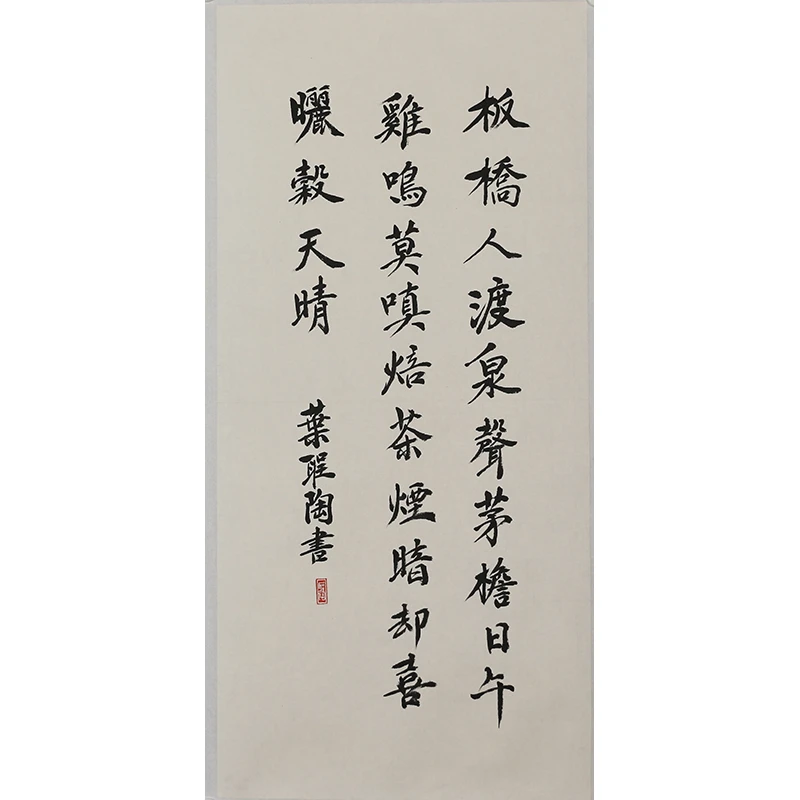 板橋人渡泉聲茅檐日午
雞鳴莫嗔焙茶煙暗却喜
曬穀天晴
葉聖陶書